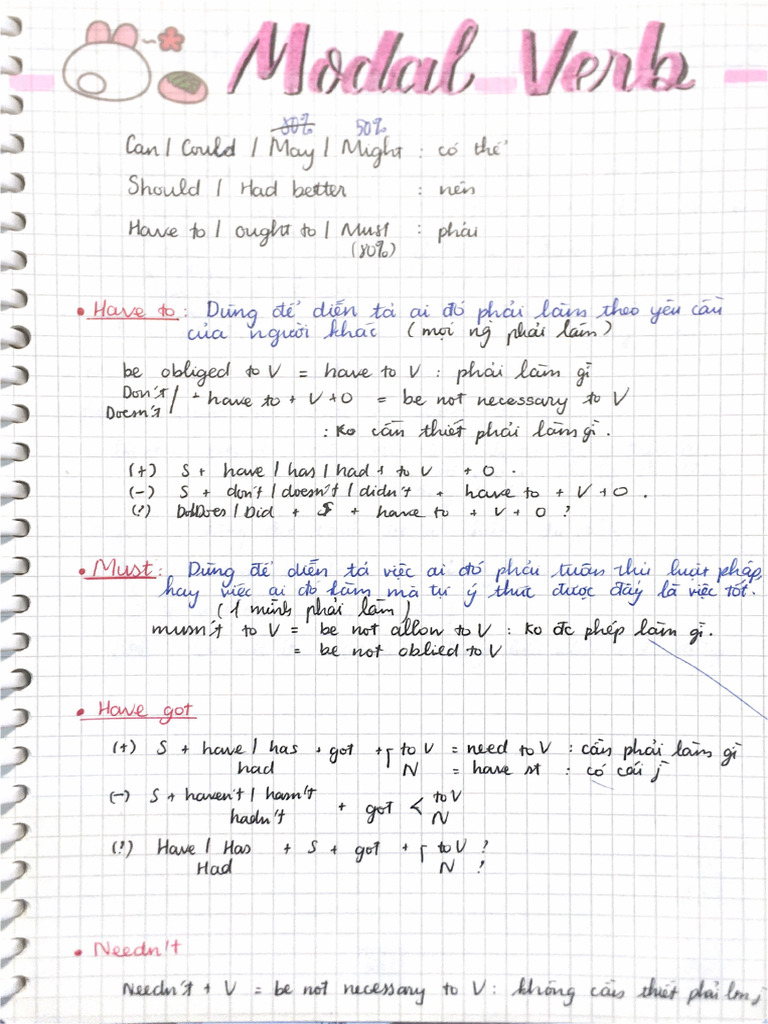 Modal Verb
80% 50%
Can / Could / May / Might : có thể
Should / Had better : nên
Have to / ought to / Must : phải
(80%)
• Have to : Dùng để diễn tả ai đó phải làm theo yêu cầu
của người khác (mọi ng̀ phải làm)
be obliged to V = have to V : phải làm gì
Don't / Doesn't + have to + V + O = be not necessary to V
: ko cần thiết phải làm gì .
(+) S + have / has / had + to V + O .
(-) S + don't / doesn't / didn't + have to + V + O .
(?) Do/Does / Did + S + have to + V + O ?
• Must : Dùng để diễn tả việc ai đó phải tuân thủ luật pháp,
hay việc ai đó làm mà tự ý thức được đấy là việc tốt.
(1 mình phải làm)
musn't to V = be not allow to V : ko đc phép làm gì.
= be not oblied to V
• Have got
(+) S + have / has + got + to V = need to V : cần phải làm gì
had N = have st : có cái j
(-) S + haven't / hasn't + got < to V
hadn't N
(?) Have / Has + S + got + to V ?
Had N ?
• Needn't
Needn't + V = be not necessary to V : không cần thiết phải làm j